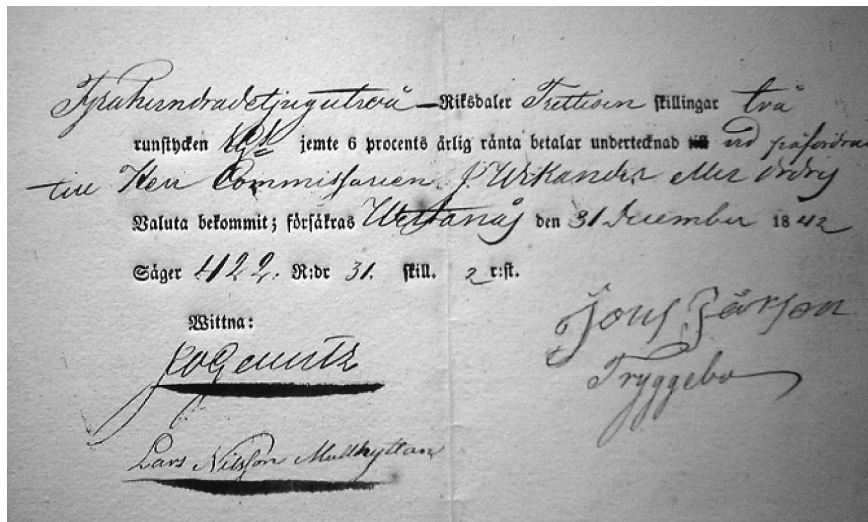 Fyrahundradetjugutvå Riksdaler Trettioen skillingar två
runstycken Rgs jemte 6 procents årlig ränta betalar undertecknad till vid påfordran
till Herr Commissarien J. Wikander eller ordres
Valuta bekommit; försäkras den 31 December 1842
Säger 422. R:dr 31. skill. 2 r:st.
Wittna:
Jons Jönson
Tryggebo
Lars Nilsson Mullhyttan